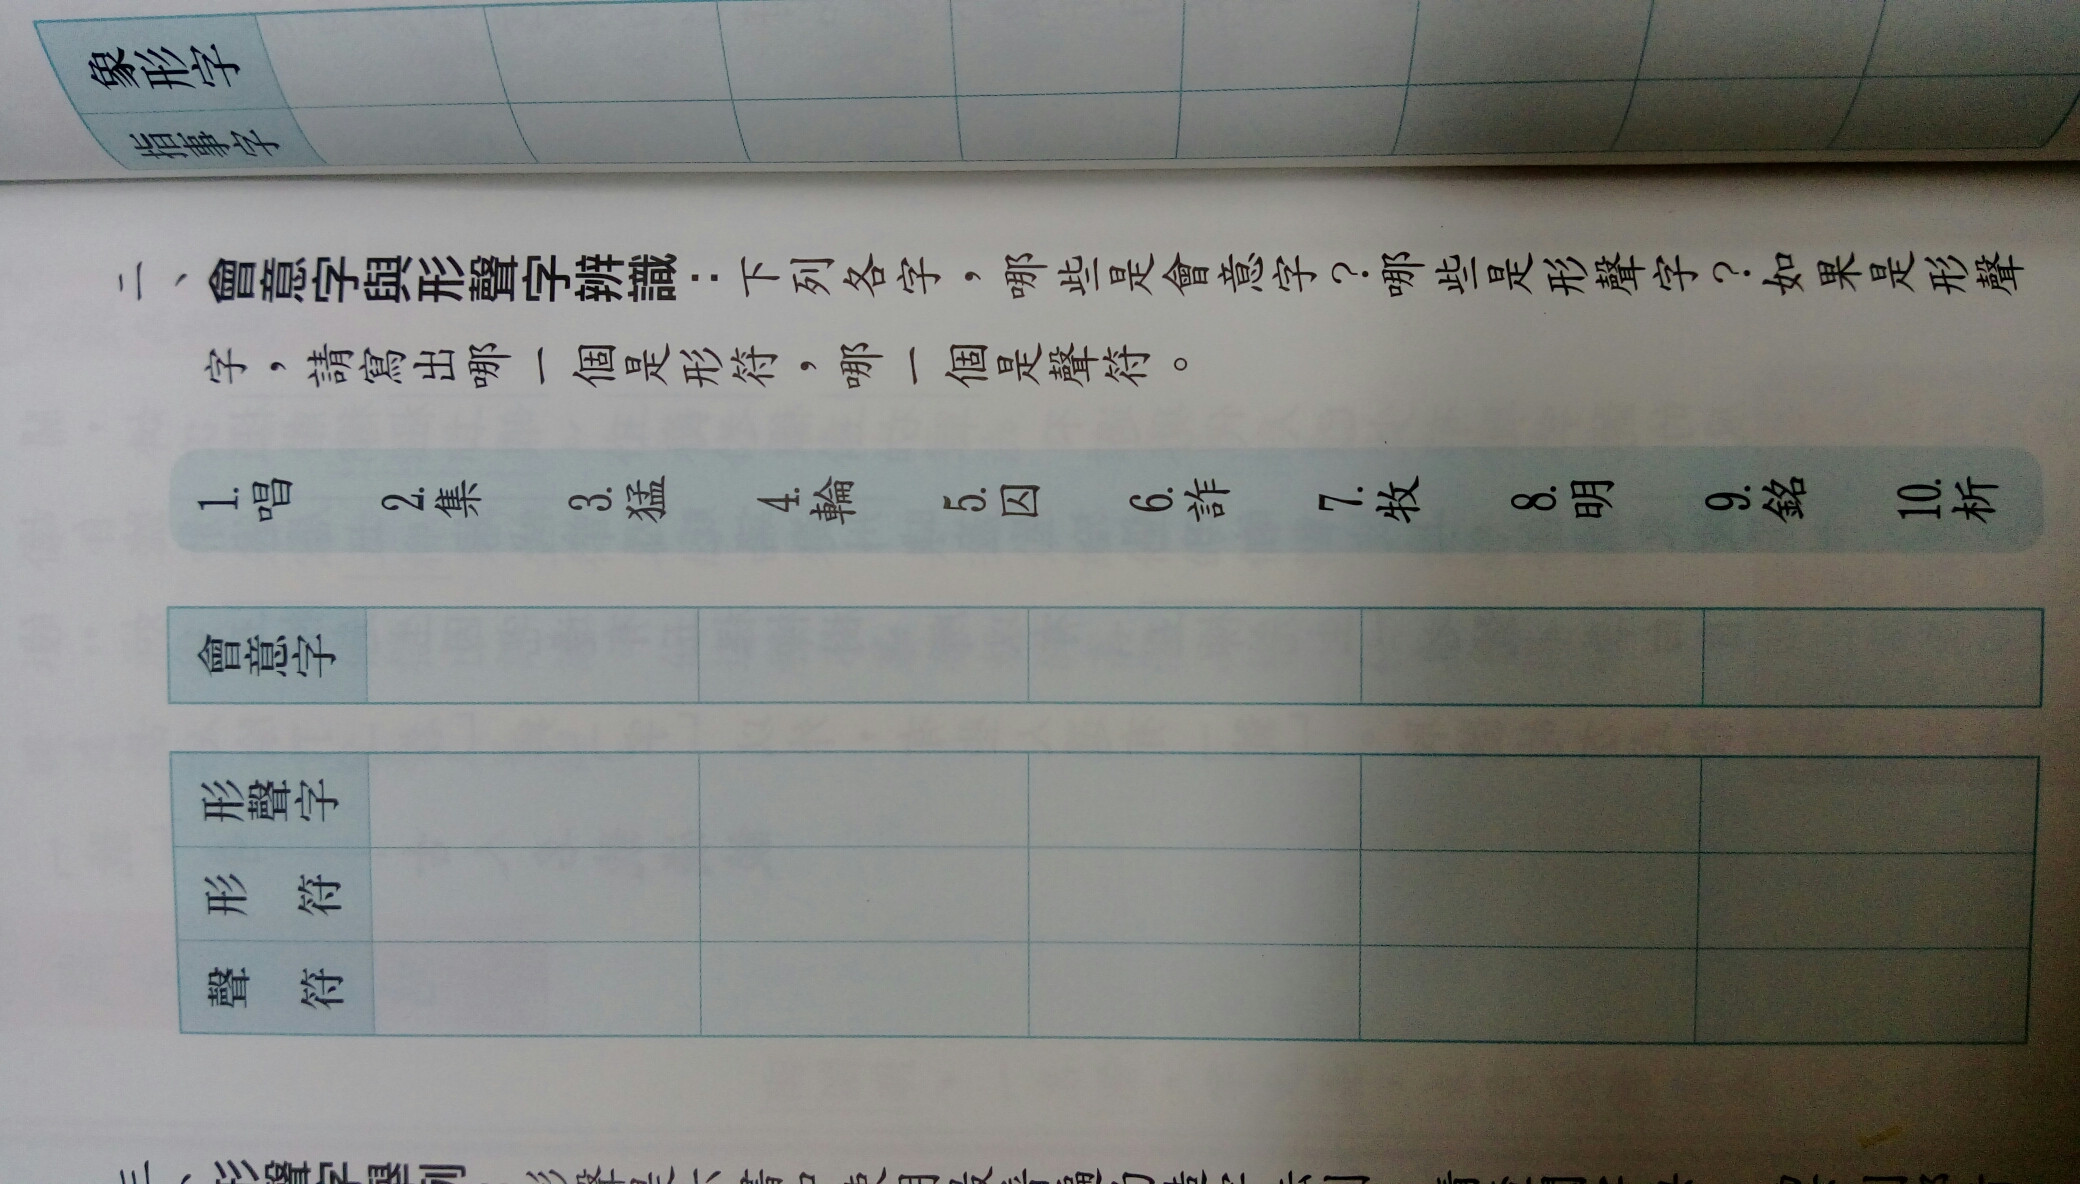 象形字
指事字
二、會意字與形聲字辨識：下列各字，哪些是會意字？哪些是形聲字？如果是形聲
字，請寫出哪一個是形符，哪一個是聲符。
1.唱 2.集 3.猛 4.輪 5.囚 6.詐 7.牧 8.明 9.銘 10.析
會意字
形聲字
形符
聲符
三、形聲字舉例